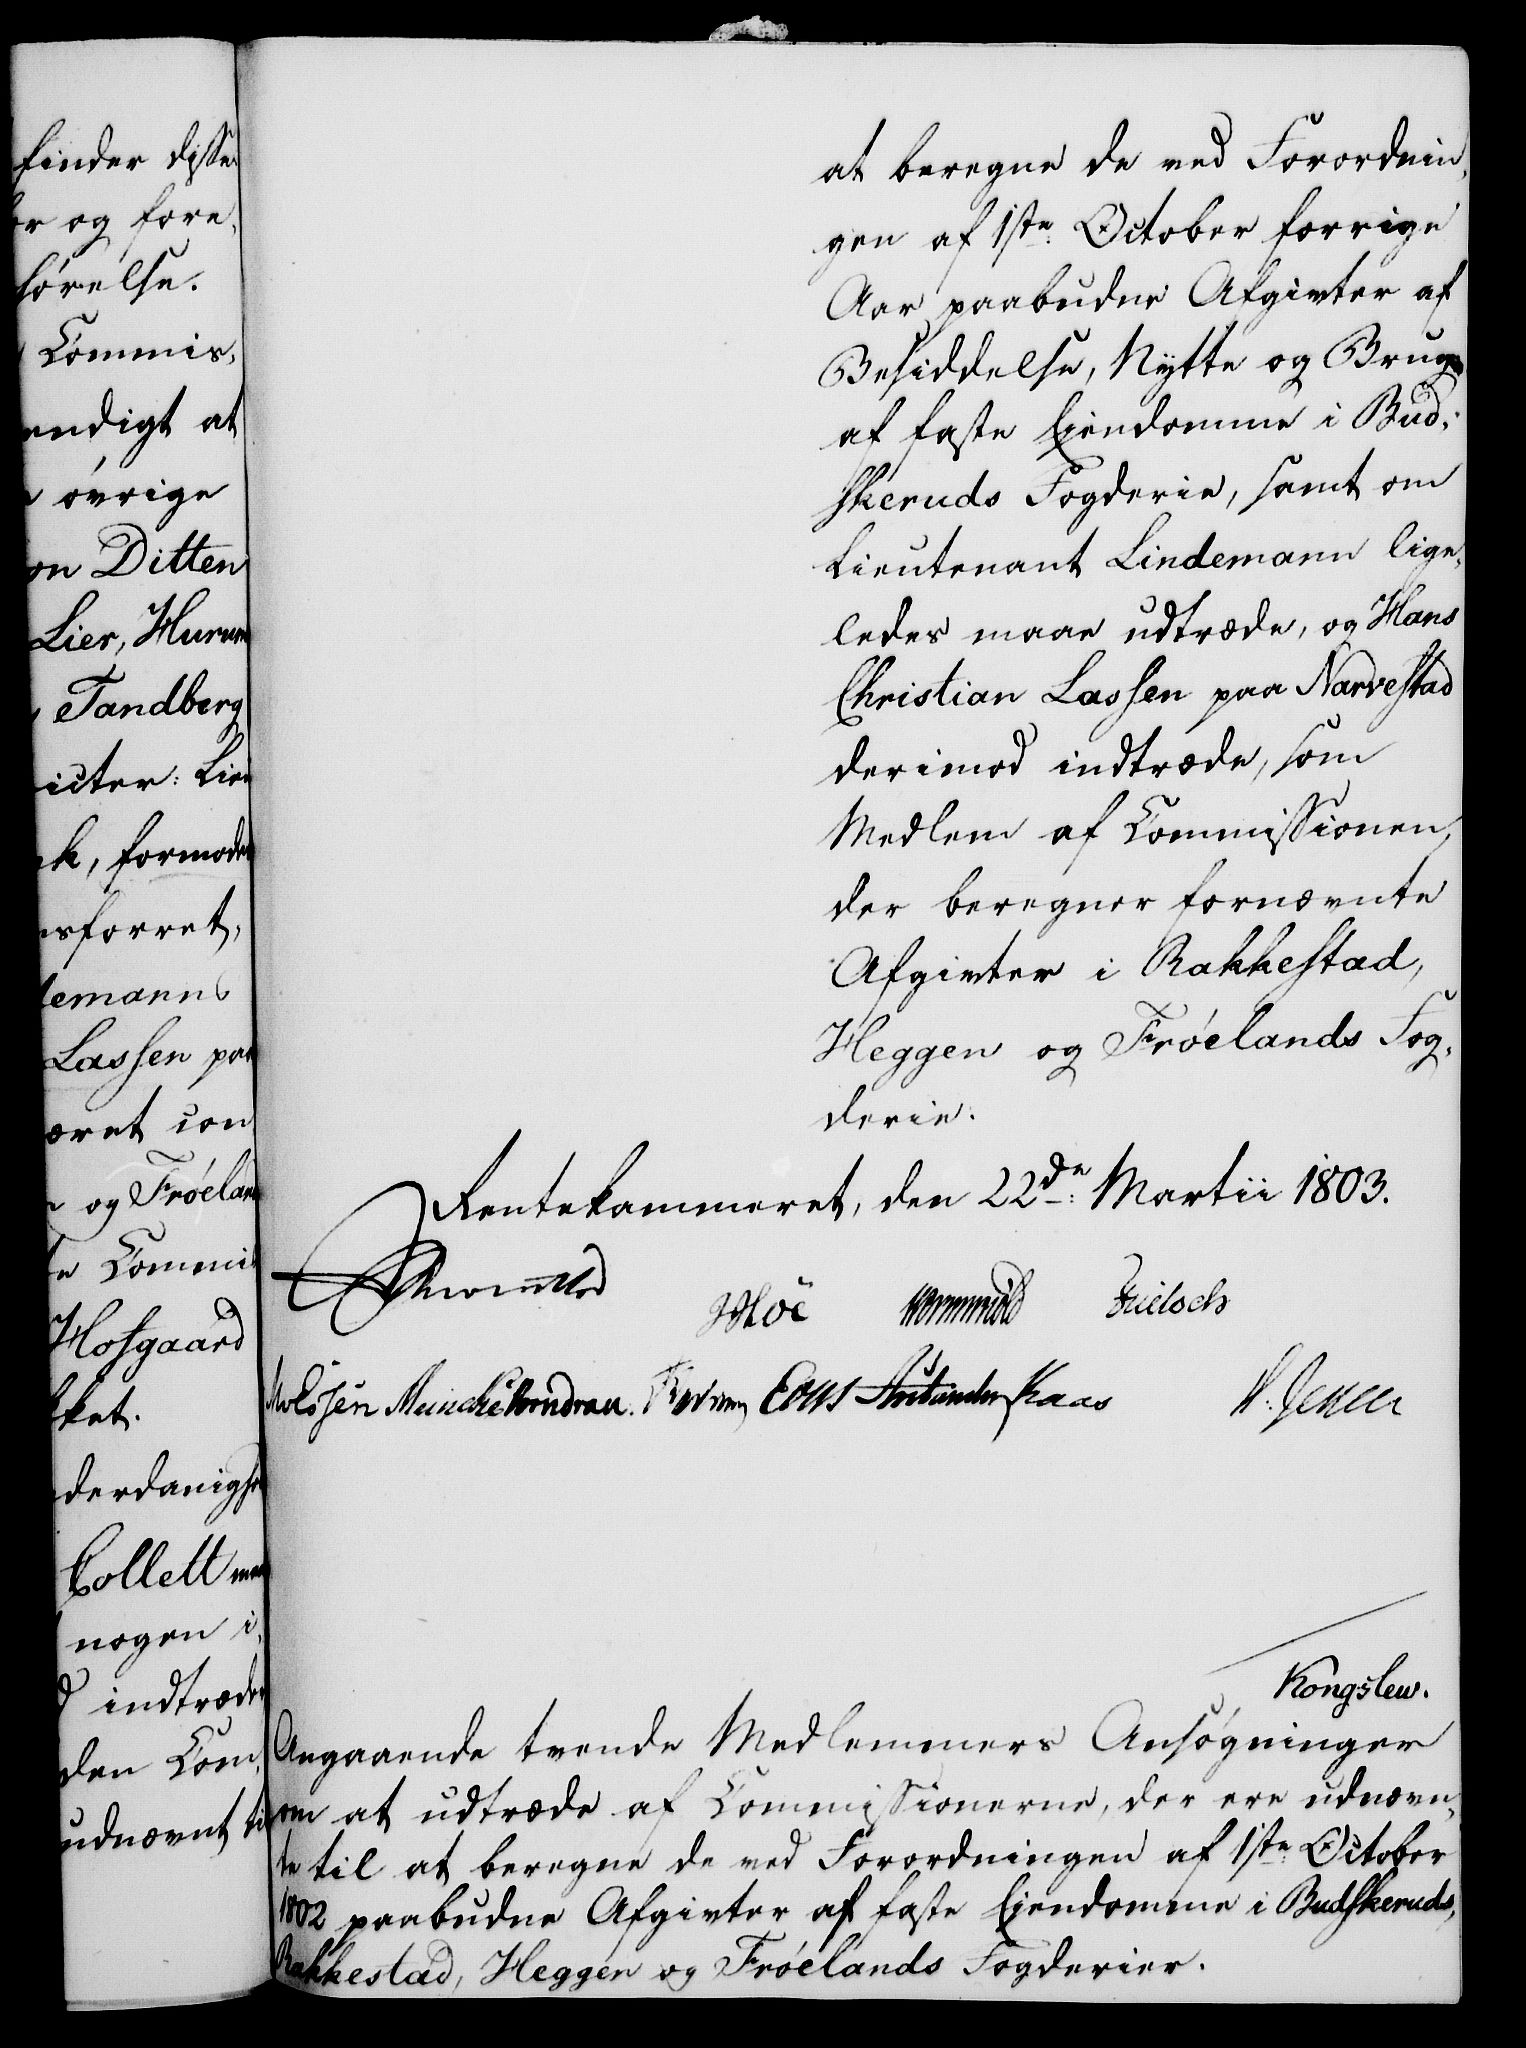 finder disse
og fore,
førelse.
Commis,
endigt at
øvrige
Ditten
Lier, Hurum
Tandberg
formodet
Lassen paa
æret con
og Frøelan
Commis
Hofgaard
ket.
derdanigst
Collett
nogen i,
indtræde
den Com,
udnævnt til
at beregne de ved Forordnin,
gen af 1ste October forrige
Aar paabudne Afgivter af
Besiddelse, Nytte og Brugen
af faste Eiendomme i Bud,
skeruds Fogderie, samt om
Lieutenant Lindemann lige,
ledes maae udtræde, og Hans
Christian Lassen paa Narvestad
derimod indtræde, som
Medlem af Commissionen,
der beregner fornævnte
Afgivter i Rakkestad,
Heggen og Frøelands Fog,
derie.
Rentekammeret, den 22de: Martii 1803.
Kaas
Kongslew.
Angaaende tvende Medlemmers Ansøgninger
om at udtræde af Commissionerne, der ere udnævn,
te til at beregne de ved Forordningen af 1ste October
1802 paabudne Afgivter af faste Eiendomme i Budskeruds,
Rakkestad, Heggen og Frøelands Fogderier.